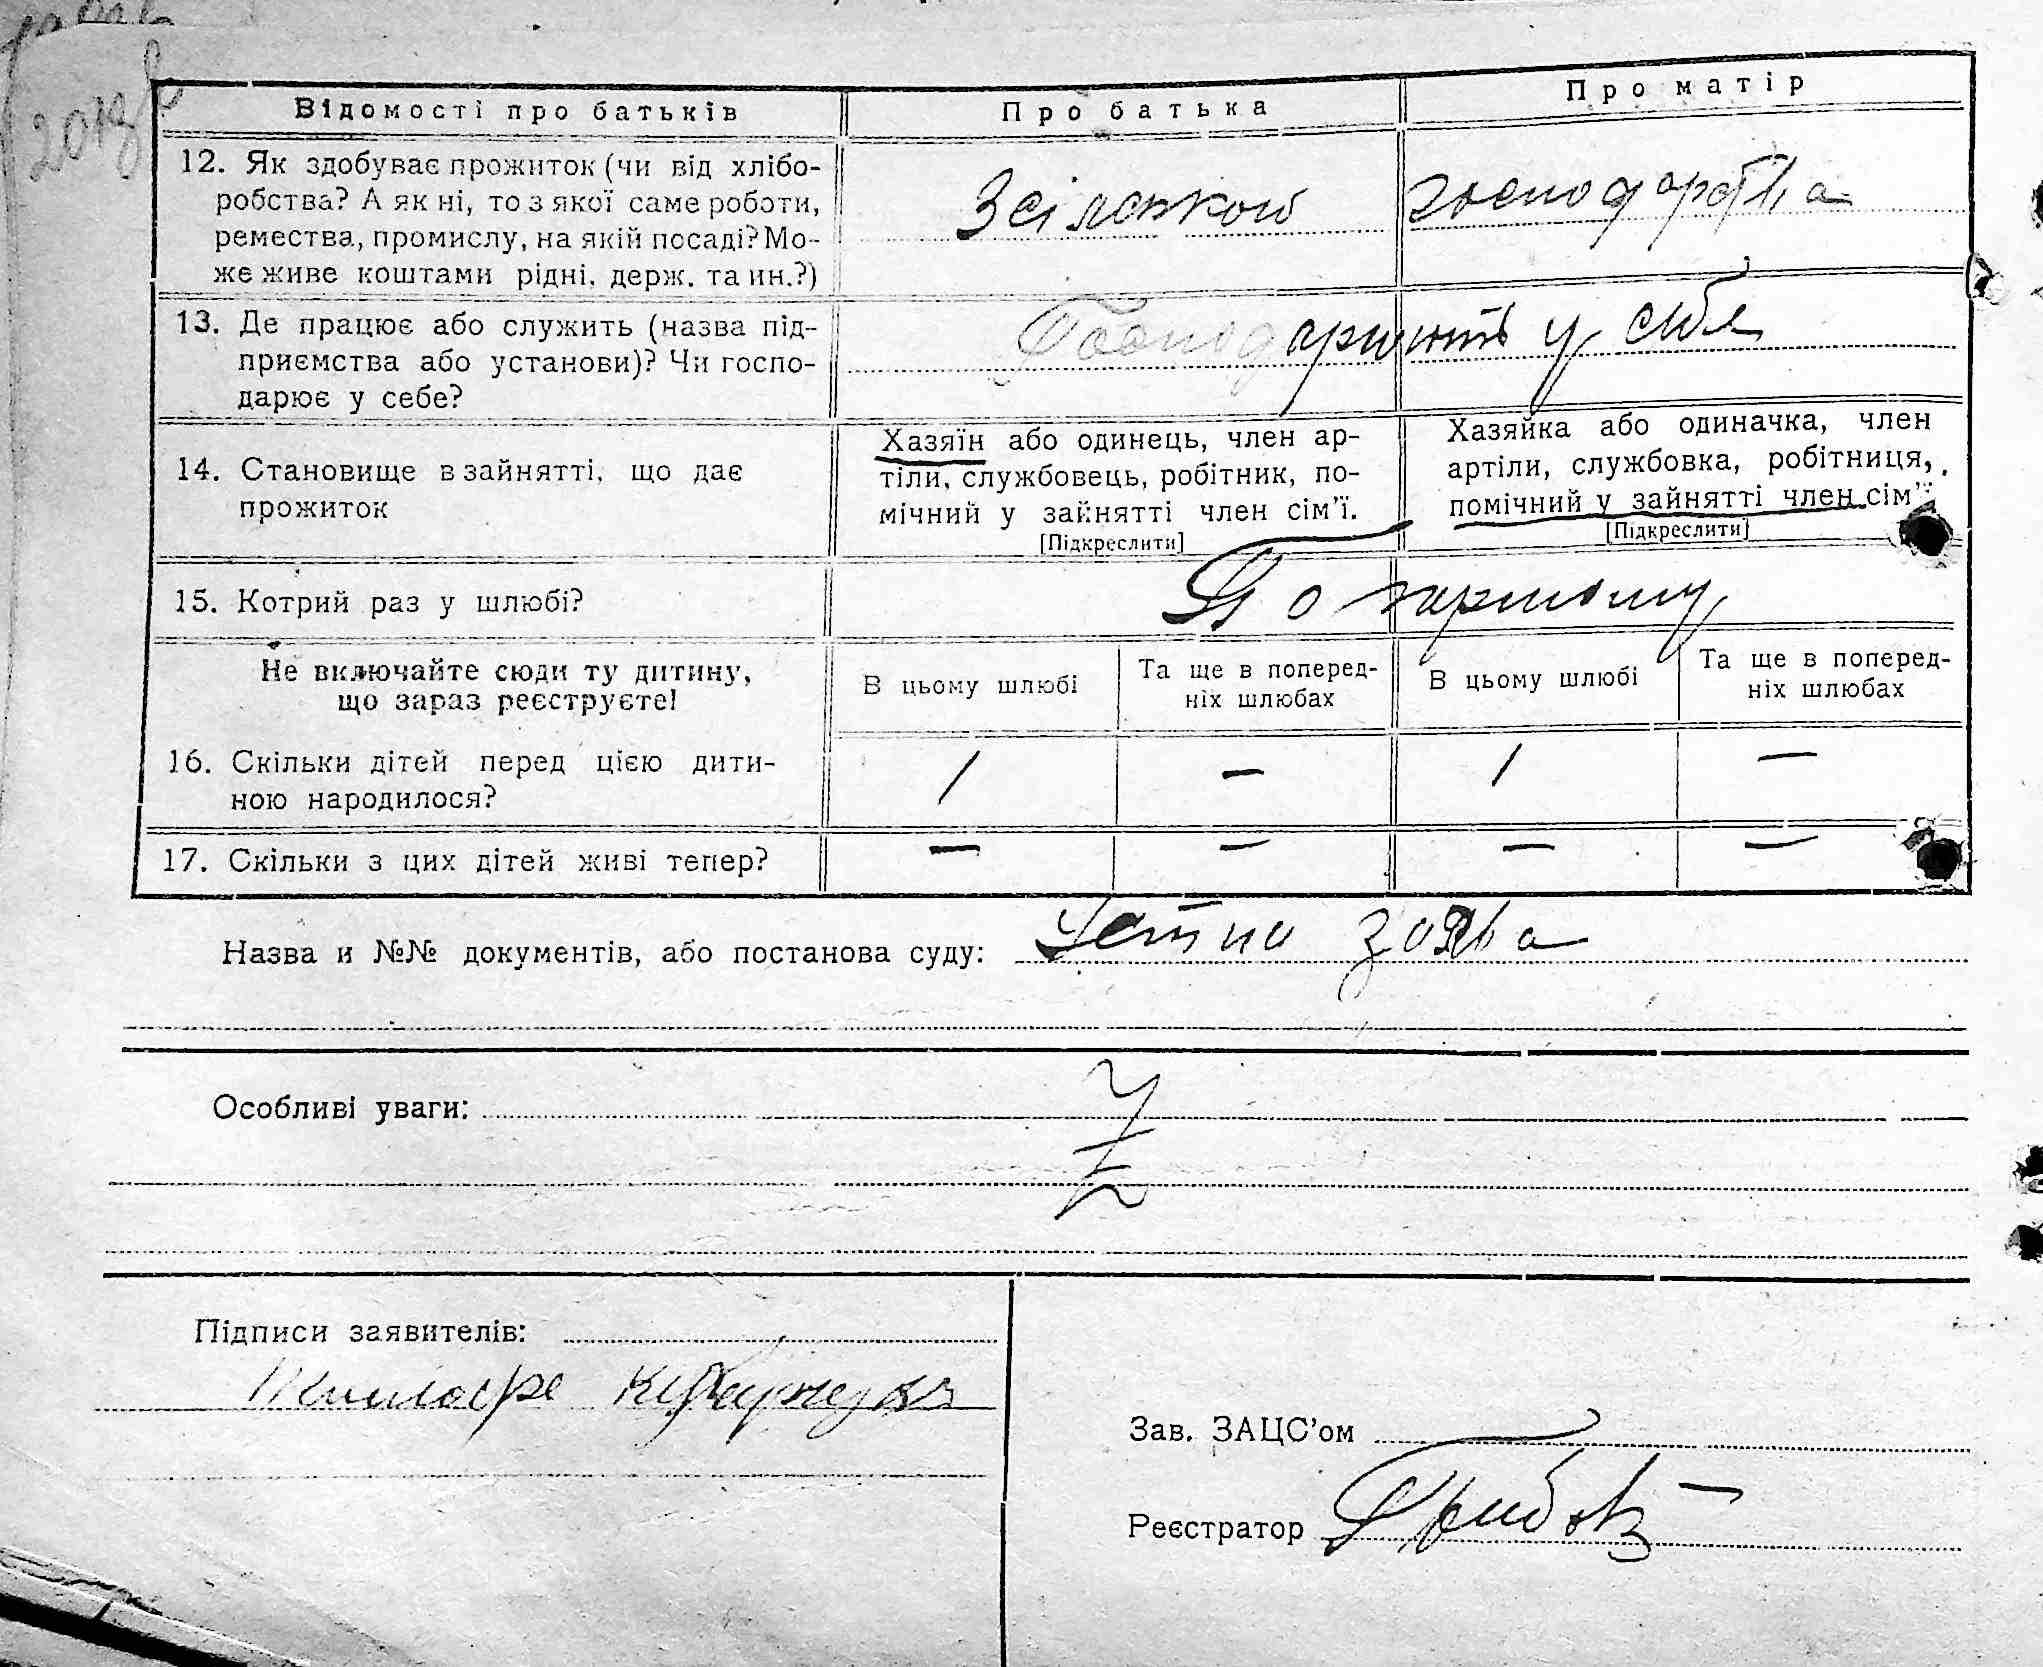 Відомості про батьків Про батька Про матір
12. Як здобуває прожиток (чи від хлібо-
робства? А як ні, то з якої саме роботи,
ремества, промислу, на якій посаді? Мо-
же живе коштами рідні, держ. та ин.?)
З сільського господарства
13. Де працює або служить (назва під-
приємства або установи)? Чи госпо-
дарює у себе?
Господарюють у себе
14. Становище в зайнятті, що дає
прожиток
Хазяїн або одинець, член ар-
тіли, службовець, робітник, по-
мічний у зайнятті член сім'ї.
[Підкреслити]
Хазяйка або одиначка, член
артіли, службовка, робітниця,
помічний у зайнятті член сім'ї
[Підкреслити]
15. Котрий раз у шлюбі? По первому
Не включайте сюди ту дитину,
що зараз реєструєте!
В цьому шлюбі
Та ще в поперед-
ніх шлюбах
В цьому шлюбі
Та ще в поперед-
ніх шлюбах
16. Скільки дітей перед цією дити-
ною народилося?
1 — 1 —
17. Скільки з цих дітей живі тепер? — — — —
Назва и №№ документів, або постанова суду: Устна заява
Особливі уваги:
Підписи заявителів:
Зав. ЗАЦС'ом
Реєстратор